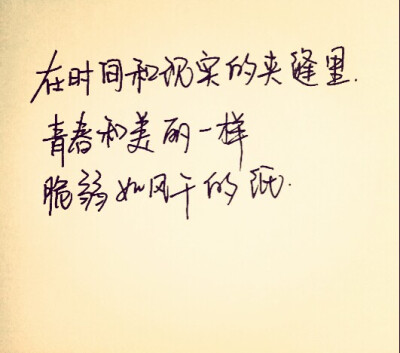 在时间和现实的夹缝里.
青春和美丽一样
脆弱如风干的纸.